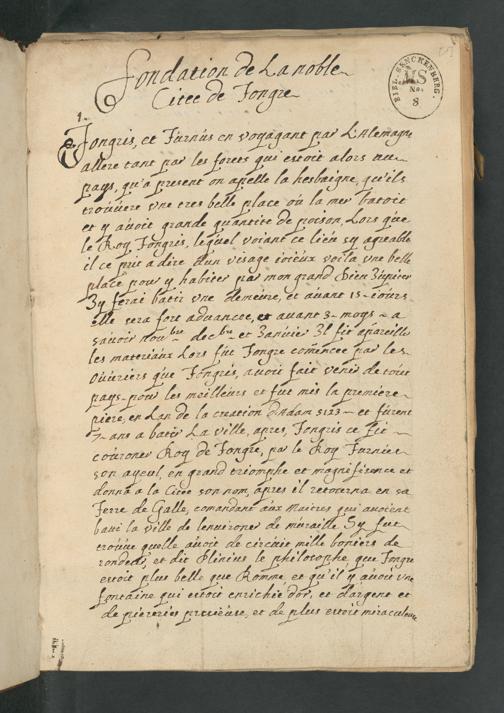 Fondation de La noble
Citee de Tongre
BIBL. SENCKENBERG.
MS
No.
8
1.
Tongris, et Turnus en voyagant par L'Alemagne
allere tant par les forets qui estoit alors nu
pays, qu'a present on apelle la hesbaigne, qu'ils
trouuere vne tres belle place où la mer batoit
et y auoit grande quantite de poison, Lors que
le Roy Tongris, lequel voiant ce lieu sy agreable
il ce prit a dire d'un visage ioieux voila vne belle
place pour y habiter par mon grand Dieu Jupiter
Jy feray batir vne demeure, et auant 15 iours
elle sera fort aduancee, et auant 3 moys a
sauoir nou.bre dec.bre et Januier Il fit apareiller
les materiaux Lors fut Tongre comencee par les
Ouuriers que Tongris, auoit fait venir de tout
pays pour les meilleurs et fut mis la premiere
piere, en Lan de la creation d'Adam 5123 et furent
7 ans a batir La ville, apres, Tongris ce fit
couroner Roy de Tongre, par le Roy Turnus
son ayeul, en grand triomphe et magnificence et
donna a la Citee son nom, apres il retourna en sa
Terre de Galle, comandant aux Maitres qui auoient
bati la ville de lenuironer de muraille Sy fut
trouue quelle auoit de circuie mille boniers de
rondeur, et dit Plinius le philosophe que Tongre
estoit plus belle que Romme et qu'il y auoit vne
fontaine qui estoit enrichie d'or, et d'argent et
de piereries precieuse, et de plus estoit miraculeuse